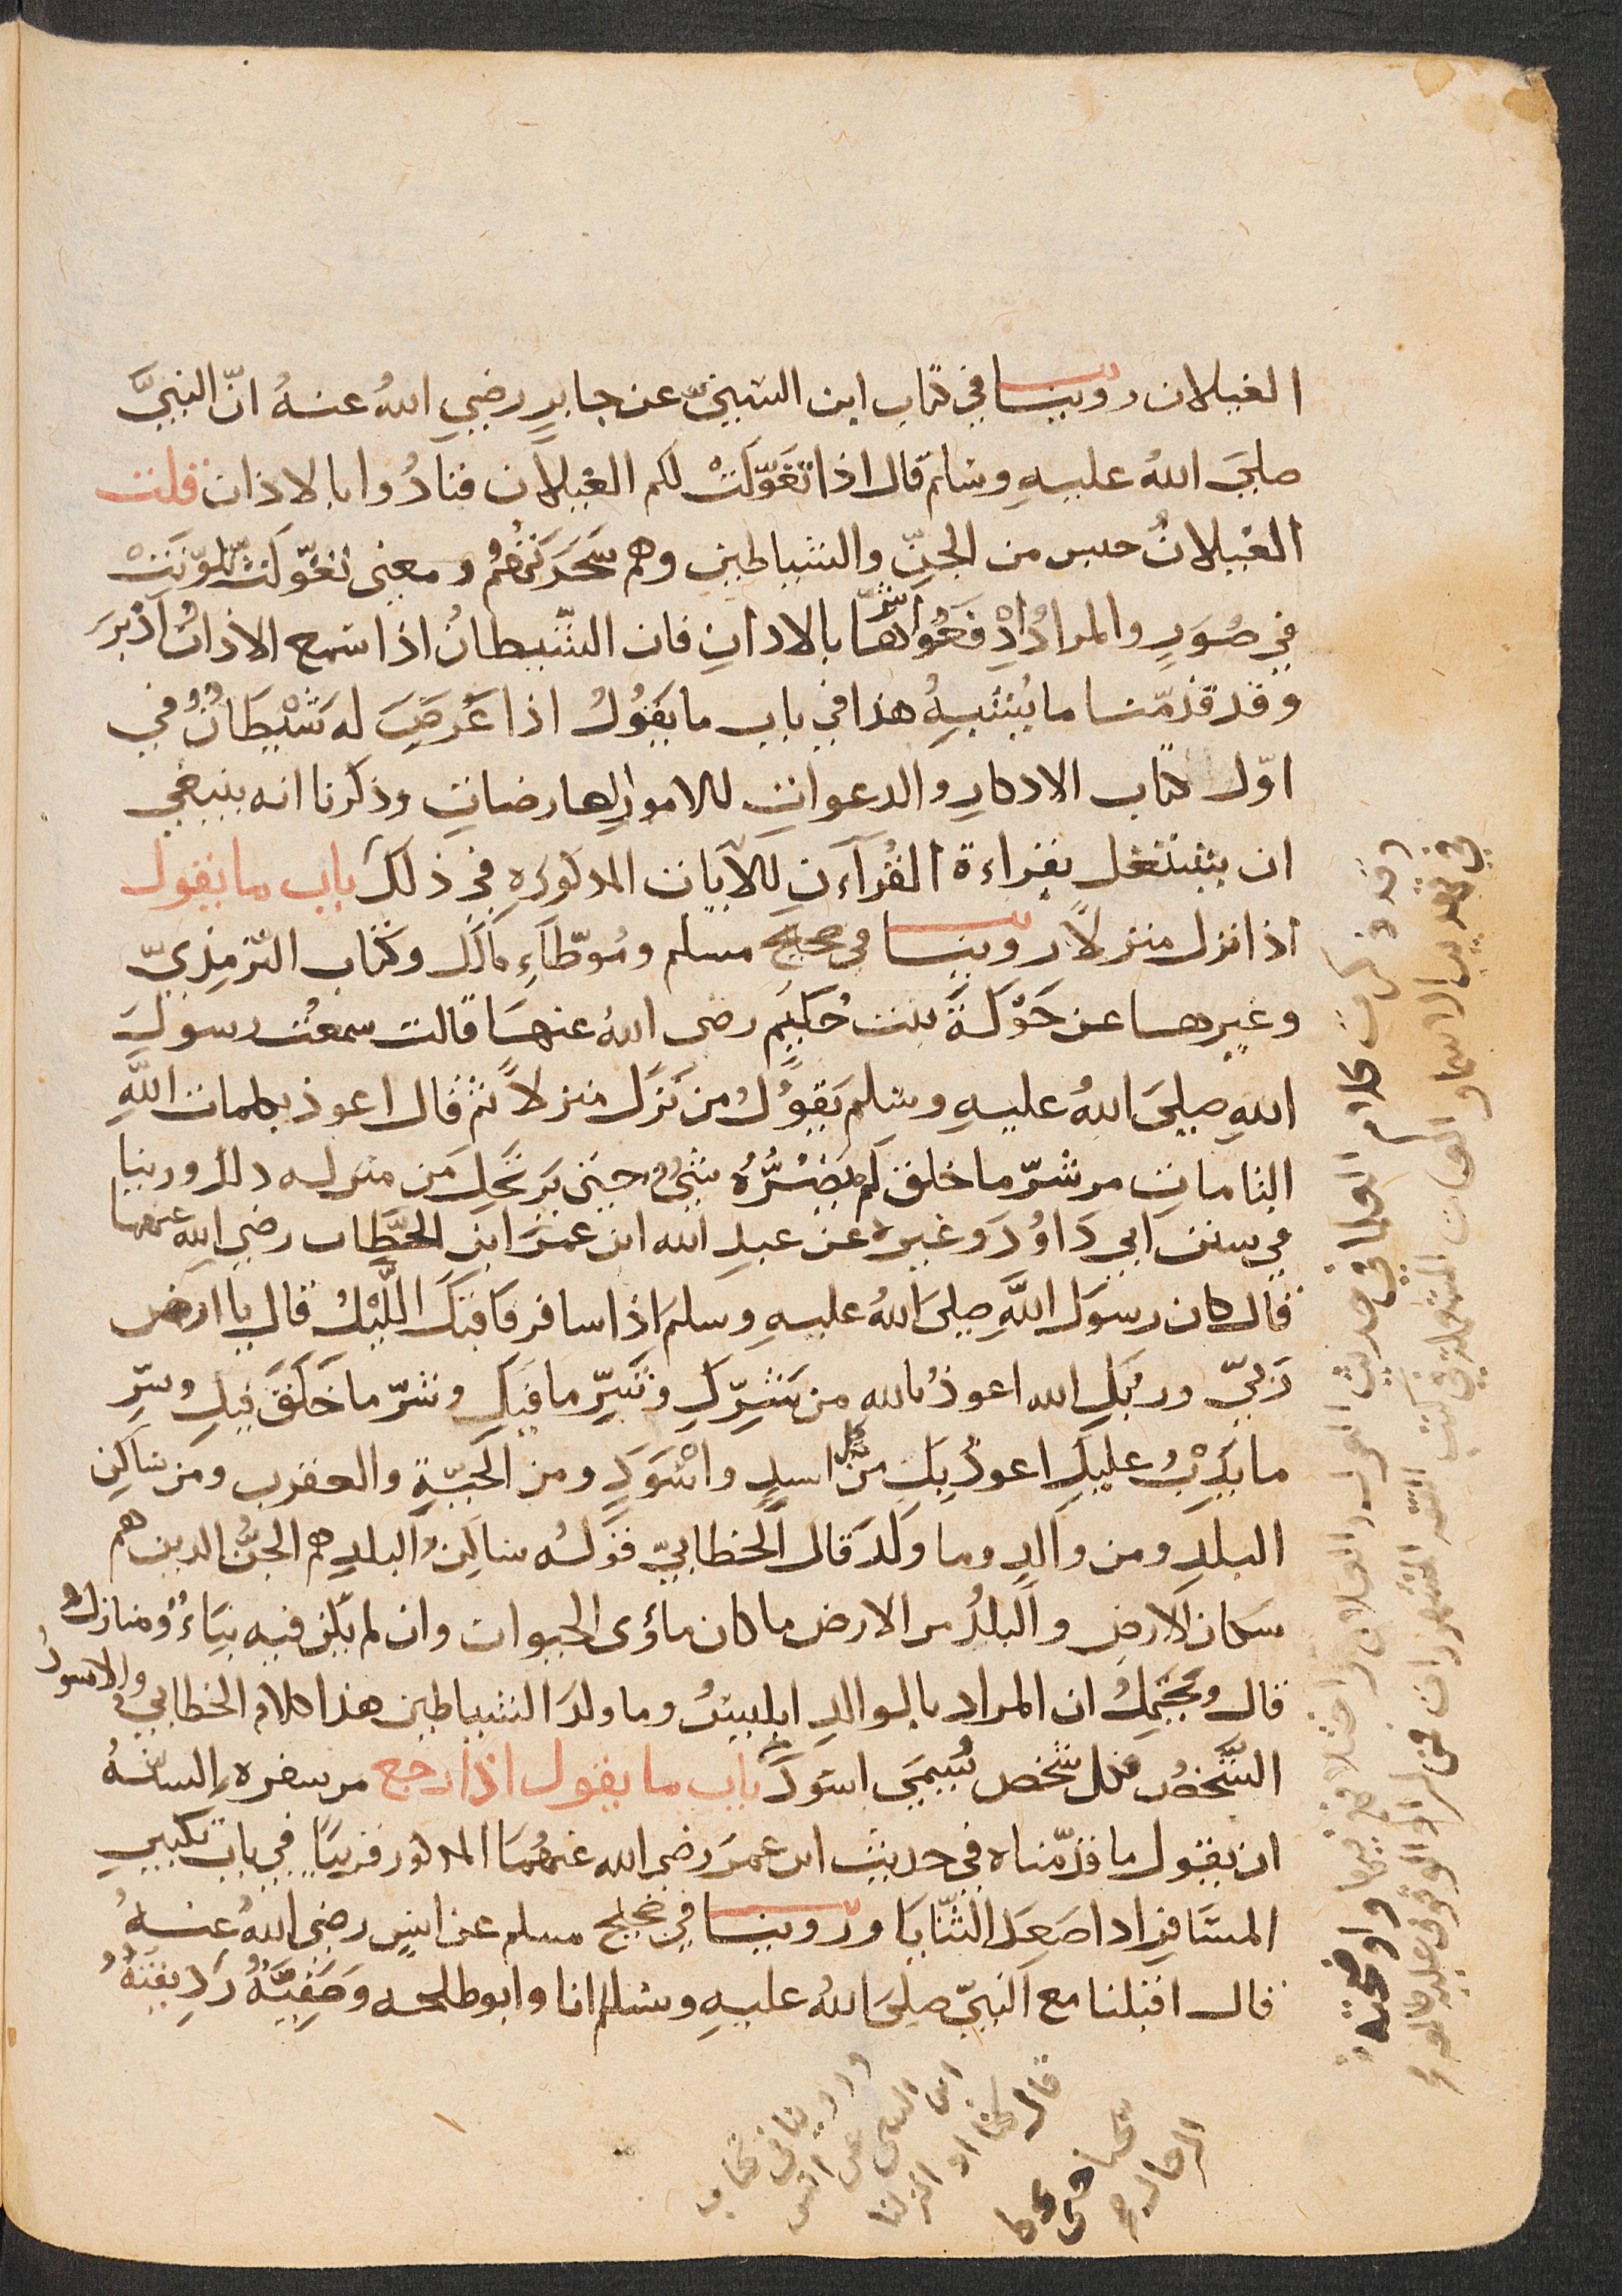 الغيلان روينا في كتاب ابن السني عن جابر رضي الله عنهُ انّ النبيَّ
صلى اللهُ عليهِ وسلم قال اذا تغَوّلَتْ لكم الغيلان فنادُوا بالاذان قلت
الغيلانُ جنس من الجنّ والشياطين وهم سَحَرَتهُم ومعنى تغوّلت تلوّنَتْ
في صُوَرٍ والمرادُ ادْفعُوا شرّها بالاذان فان الشّيطانُ اذا سمع الاذانُ اَدْبَرَ
وقد قدّمنا ما يُشبهُ هذا في باب ما يقُولُ اذا عَرضَ لهُ شَيْطانٌ في
اوّل كتاب الاذكارِ والدعوات للامورِ العارضات وذكرنا انه ينبغي
ان يشتغل بقراءة القُرآن للآيات المذكورة في ذلك باب ما يقول
اذا نزل منزلاً روينا في صحيح مسلم ومُوطّاءِ مالك وكتاب التّرمذيّ
وغيرهما عن خَوْلةَ بنت حُكيم رضى اللهُ عنها قالت سمعتُ رسولَ
اللهِ صلى اللهُ عليهِ وسلم يقولُ من نَزل منزلاً ثم قال اعوذ بكلمات اللّهِ
التامات من شرّ ما خلق لَم يضُرُّهُ شيءٌ حتى يَرتحِل من منزله ذلك وروينا
في سنن ابي دَاوُدَ وغيره عن عبدِ الله ابن عمَرَ ابن الخطَّاب رضي الله عنهما
قال كان رسول اللّهِ صلى اللهُ عليهِ وسلم اذا سافر فاقبل اللّيْلُ قال يا ارض
ربيّ وربُّكِ الله اعوذُ بالله من شرِّكِ وشرِّ ما فيكِ وشرّ ما خَلَقَ فيكِ وشرِّ
ما يدِبُّ عليكِ اعوذُ بكِ من شر كل اسدٍ واسْوَدٍ ومن الحيّةِ والعقرب ومن ساكِن
البلدِ ومن والدٍ وما ولدَ قال الخطابيّ قولُه ساكن البلدِ هم الجنُّ الذين هم
سكان الارض والبلدُ من الارض ما كان ماوى الحيوان وان لم يكن فيه بنَاءٌ ومنازلُ
قال ويحتملُ ان المراد بالوالدِ ابليسُ وما ولدَ الشياطين هذا كلام الخطابي والاسودُ
الشّخصُ فكل شخص يُسمى اسوَدَ باب ما يقول اذا رجع من سفره السنهُ
ان يقول ما قدّمناه في حديث ابن عمرَ رضي الله عنهُما المذكور قريباً في باب تكبيرِ
المسَافر اذا صَعِدَ الثّنايا وروينا في صحيح مسلم عن انسٍ رضى اللهُ عنهُ
قال اقبلنا مع النبيّ صلى اللهُ عليهِ وسلم انا وابو طلحه وصَفيّةُ رَدِيفتُهُ
وقد ذكرت كلام العلما في حديث الغول والغيلان واختلافهم فيها واوضحته
في تهذيب الاسما واللغات المستعملة في كتب الفقه
وروينا في كتاب
ابن السني عن انس
قال كنا اذا نزلنا
سبحنا حتى
الرحال